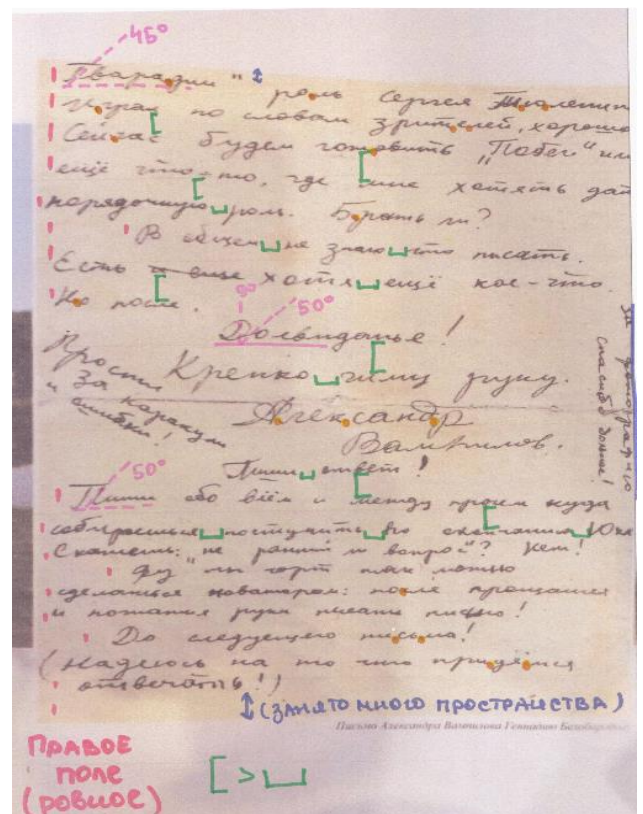 45°
роль Сергея Тюленин
Играл по словам зрителей, хорошо
Сейчас будем готовить „Побег" или
ещё что-то, где мне хотять дат
порядочную роль. Брать ли?
В общем не знаю что писать.
Есть и еще хотя ещё кое-что.
Но после.
90°
50°
До свиданье!
Крепко жму руку.
Александр
Вампилов.
Прости
за каракули
и ошибки!
За фотографию
спасибо
Пиши ответ!
50°
Пиши обо всём и между прочим куда
собираешься поступить по окончании 10кл
Скажешь: "не ранний ли вопрос"? Нет!
сделаться новатором: после прощания
и пожатия руки писать письмо!
До следующего письма!
(Надеюсь на то что придётся
отвечать!)
(ЗАНЯТО МНОГО ПРОСТРАНСТВА)
Письмо Александра Вампилова Геннадию
ПРАВОЕ
ПОЛЕ
(РОВНОЕ)
[ > ⎵